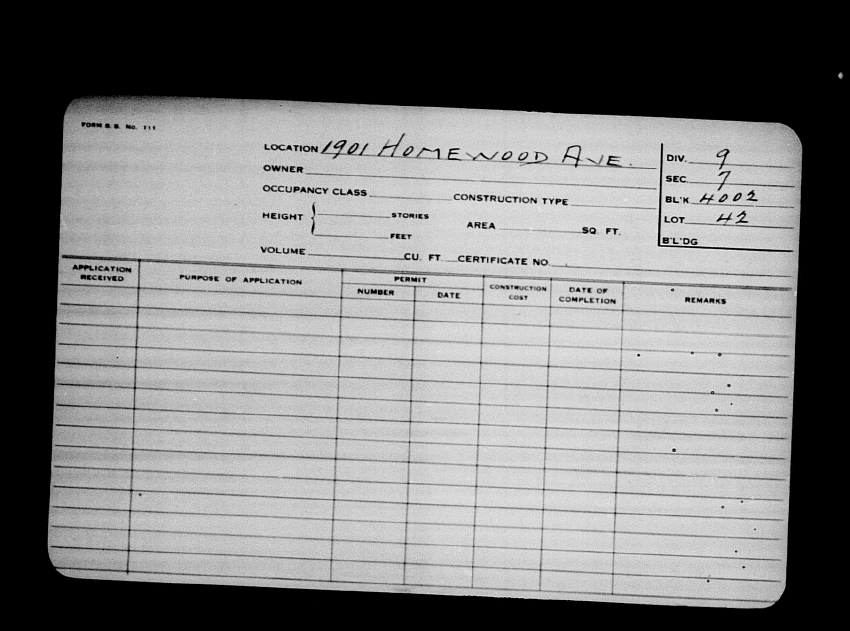 FORM B. B. No. 111
LOCATION 1901 HOMEWOOD AVE.
OWNER
OCCUPANCY CLASS CONSTRUCTION TYPE
HEIGHT { STORIES AREA SQ. FT.
FEET
VOLUME CU. FT. CERTIFICATE NO.
DIV. 9
SEC. 7
BL'K 4002
LOT 42
B'L'DG
APPLICATION RECEIVED PURPOSE OF APPLICATION PERMIT CONSTRUCTION COST DATE OF COMPLETION REMARKS
NUMBER DATE